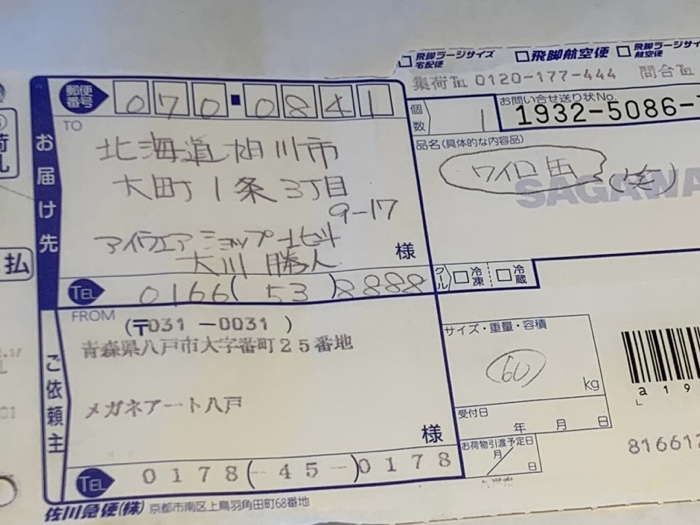 飛脚ラージサイズ宅配便 飛脚航空便 飛脚ラージサイ 航空便
集荷TEL 0120-177-444 問合TEL
お届け先
郵便番号 070-0841
個数 1
お問い合せ送り状No.
1932-5086-
TO
北海道旭川市
大町1条3丁目
9-17
アイウェアショップ北斗
大川 勝人 様
TEL 0166(53)8888
品名(具体的な内容品)
ワイロ缶 (笑)
SAGAWA
クール 冷凍 冷蔵
ご依頼主
FROM
(〒031-0031)
青森県八戸市大字番町25番地
メガネアート八戸
様
TEL 0178(-45-)0178
サイズ・重量・容積
60 kg
受付日
年 月 日
お荷物引渡予定日
/
月 日
a19
81661
佐川急便(株) 京都市南区上鳥羽角田町68番地
払